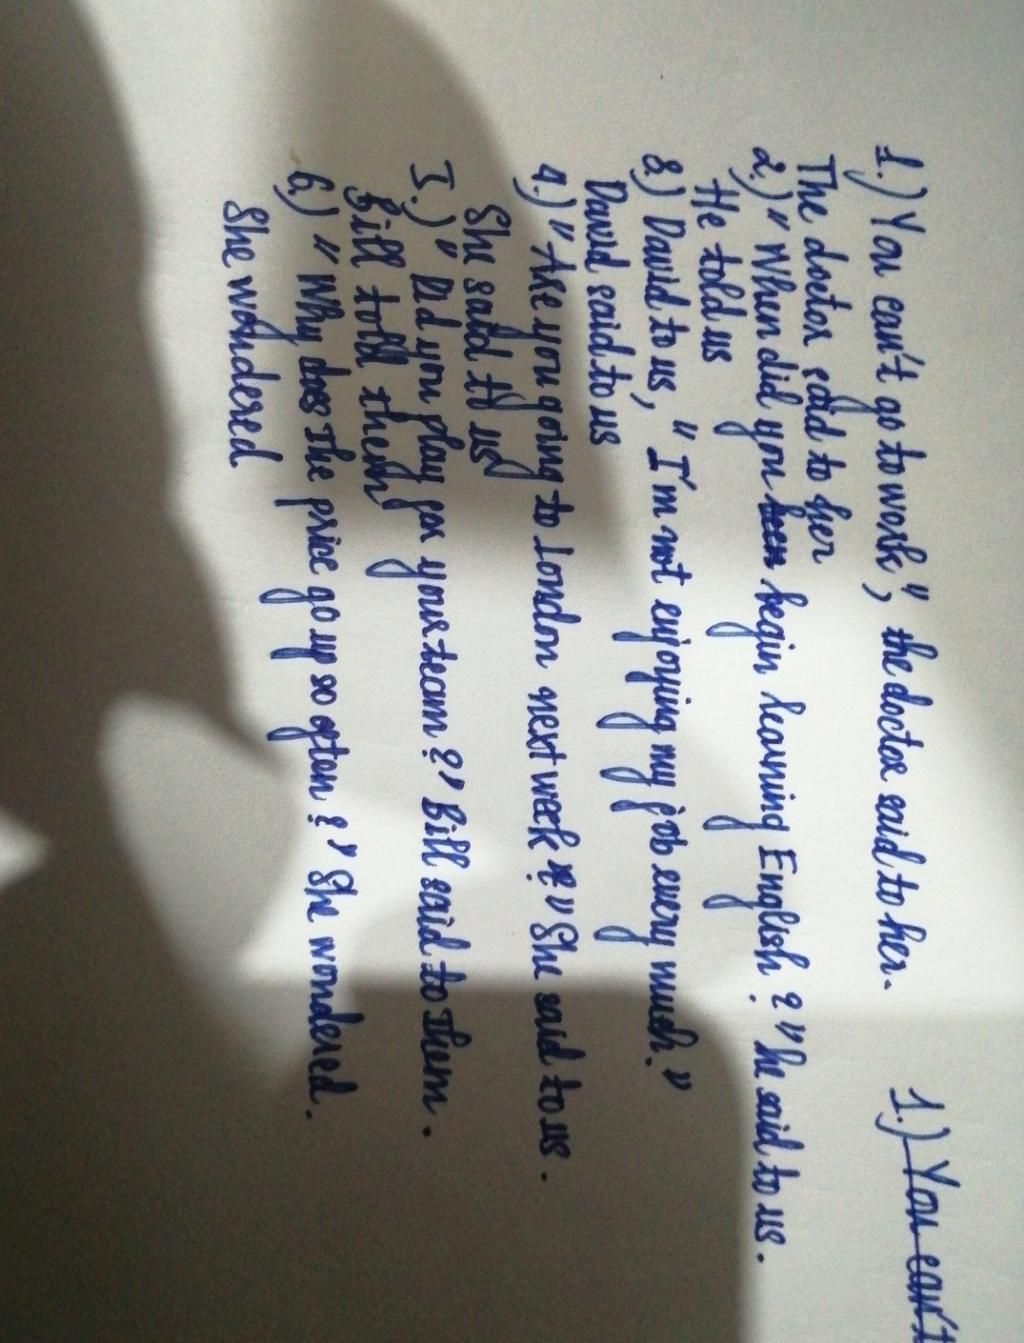 1.) You can't go to work", the doctor said to her.
The doctor said to her
2.) "When did you begin learning English?" he said to us.
He told us
3.) David to us, "I'm not enjoying my job every much."
David said to us
4.) "Are you going to London next week?" She said to us.
She said to us
5.) "Did you play for your team?" Bill said to them.
Bill told them
6.) "Why does the price go up so often?" She wondered.
She wondered
1.) You can't